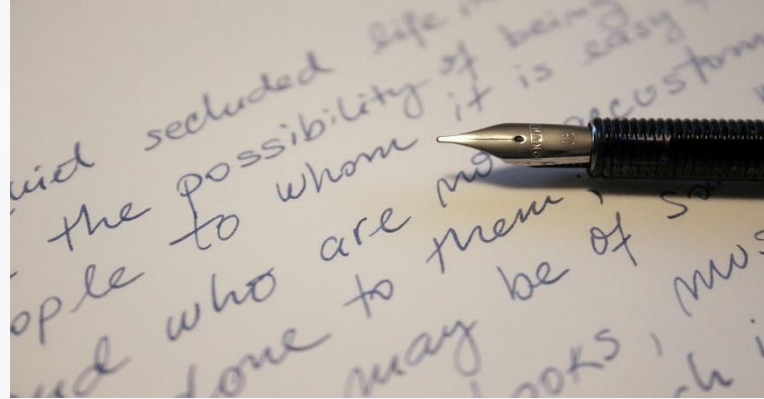 secluded life
the possibility of being
to whom it is easy
and who are not accustom
done to them,
may be of so
ooks, mus
ch i